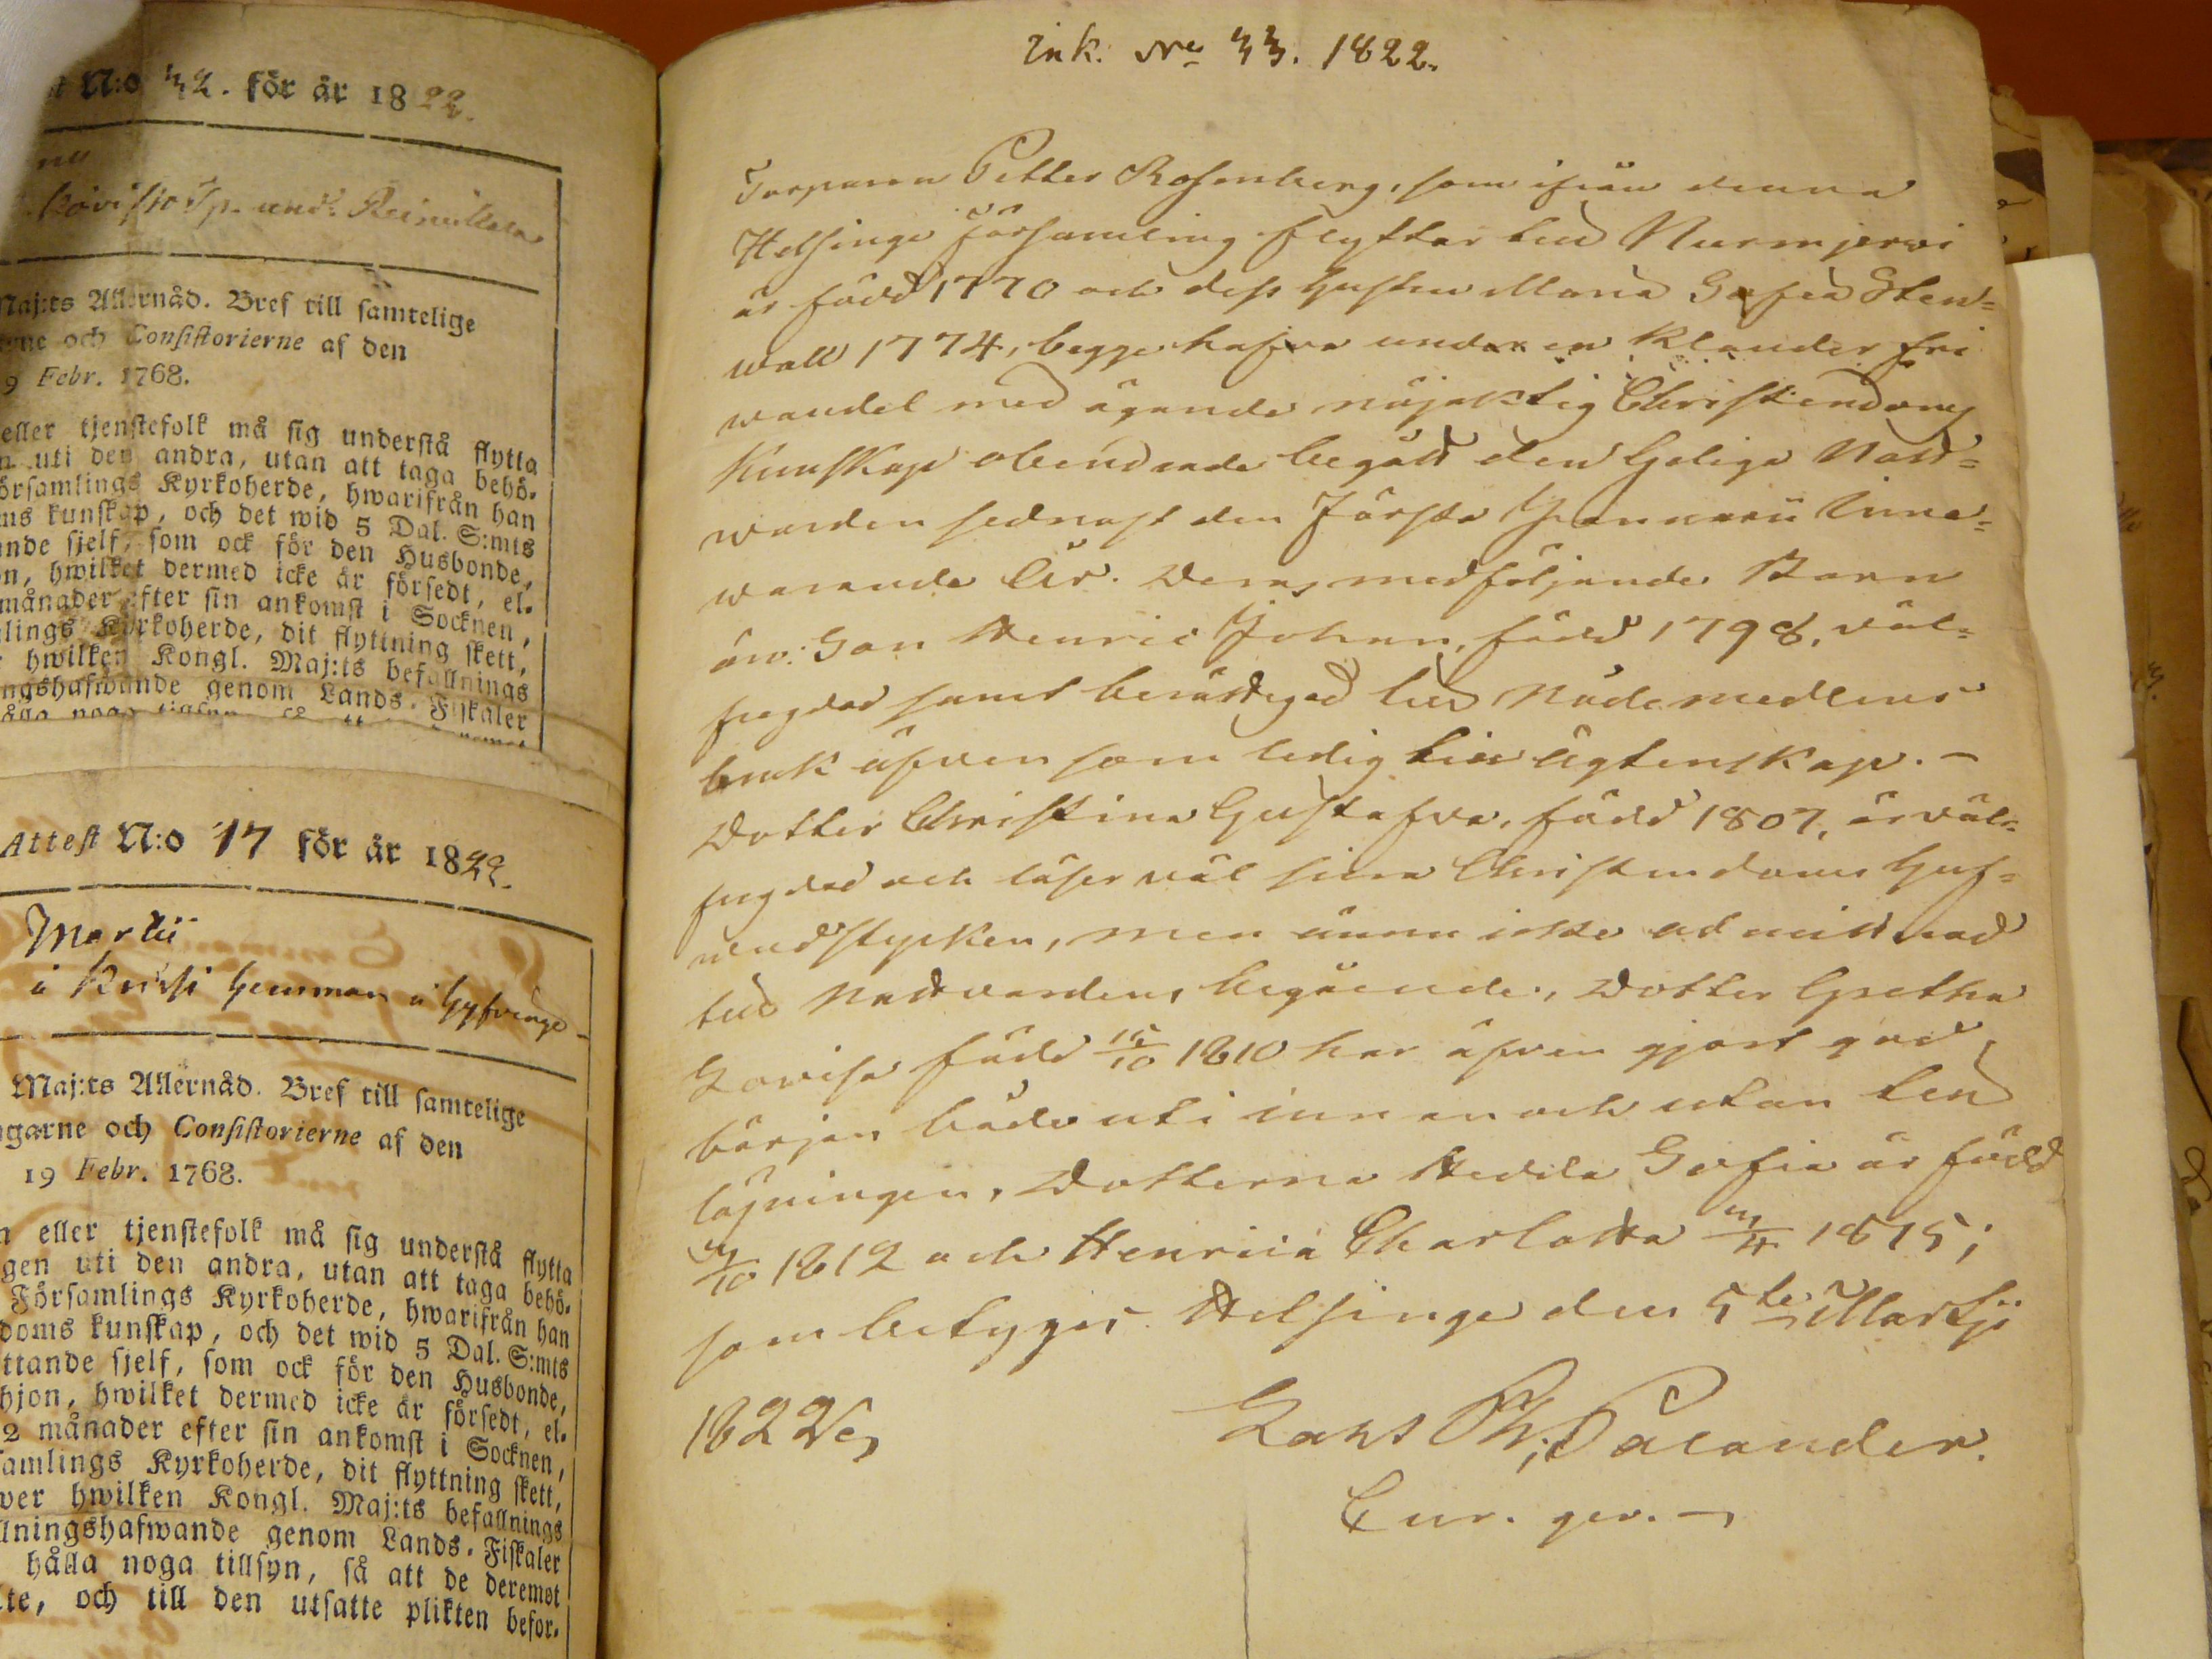 N:o 32. för år 1822.
Maj:ts Allernåd. Bref till samtelige
och Consistorierne af den
9 Febr. 1768.
eller tjenstefolk må sig understå flytta
uti den andra, utan att taga behö-
örsamlings Kyrkoherde, hwarifrån han
ms kunskap, och det wid 5 Dal. S:mts
ande sjelf, som ock för den Husbonde,
n, hwilket dermed icke är försedt, el-
månader efter sin ankomst i Socknen,
lings Kyrkoherde, dit flyttning skett,
hwilken Kongl. Maj:ts befallnings
ngshafwande genom Lands-Fiskaler
Attest N:o 17 för år 1822.
Martii
å hemman i
Maj:ts Allernåd. Bref till samtelige
garne och Consistorierne af den
19 Febr. 1768.
n eller tjenstefolk må sig understå flytta
gen uti den andra, utan att taga behö-
Församlings Kyrkoherde, hwarifrån han
doms kunskap, och det wid 5 Dal. S:mts
ttande sjelf, som ock för den Husbonde,
hjon, hwilket dermed icke är försedt, el-
2 månader efter sin ankomst i Socknen,
samlings Kyrkoherde, dit flyttning skett,
wer hwilken Kongl. Maj:ts befallnings
llningshafwande genom Lands-Fiskaler
hålla noga tillsyn, så att de deremot
te, och till den utsatte plikten befor-
Ink. No 33. 1822.
Torparen Petter Rosenberg, som ifrån denna
Helsinge Församling flyttar till Nurmjerwi
är född 1770 och dess hustru Maria Sofia Sten=
wall 1774, begge hafva under en klanderfri
wandel med ägande nöjaktig Christendoms
Kunskap obehindrade begått den Heliga Natt=
warden sednast den Första Januarii Inne=
warande År. Deras medföljande Barn
äro: Son Henric Johan, född 1798, väl=
frägdad samt berättigad till Nådemedlens
bruk äfven som ledig till ägtenskap. –
Dotter Christina Gustafva, född 1807, är väl=
frägdad och läser väl sina Christendoms huf=
vudstycken, men ännu icke admitterad
till Nattvardens begående, Dotter Gretha
Lovisa född 15/10 1810 har äfven gjort god
början både uti innan och utan till
läsningen, Dotterna Hedda Sofia är född
/10 1812 och Henrica Charlotta /4 1815;
som betygas. Helsinge den 5te Martii
1822
Palander.